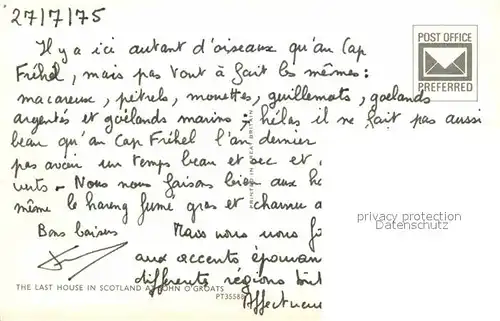 27/7/75
Il y a ici autant d'oiseaux qu'au Cap
Fréhel, mais pas tout à fait les mêmes :
macareux, pétrels, mouettes, guillemots, goélands
argentés et goélands marins ; hélas il ne fait pas aussi
beau qu'au Cap Fréhel l'an dernier
pas avoir un temps beau et sec et
verts - Nous nous faisons bien aux
même le hareng fumé gras et charnu a
Bons baisers
Mais nous nous
aux accents
différents régions
Affectueu
POST OFFICE
PREFERRED
PRINTED IN GREAT BRITAIN
privacy protection
Datenschutz
THE LAST HOUSE IN SCOTLAND AT JOHN O'GROATS
PT35588